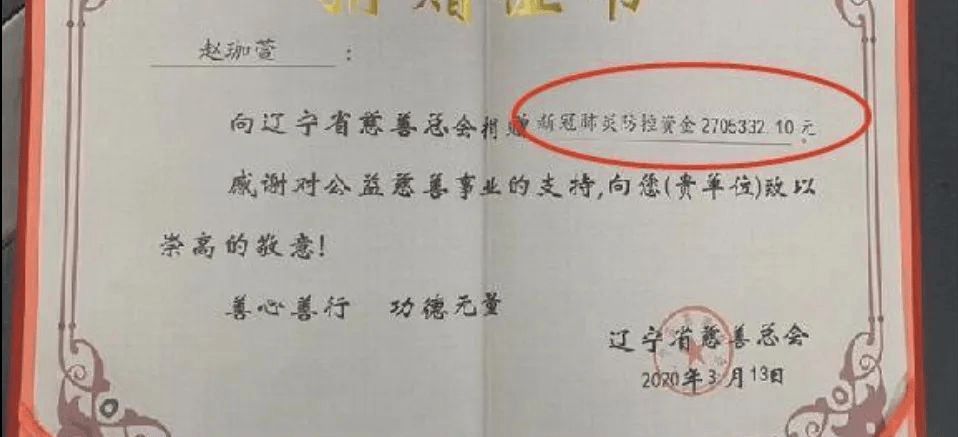 捐赠证书
赵珈萱：
向辽宁省慈善总会捐赠新冠肺炎防控资金2705332.10元。
感谢对公益慈善事业的支持,向您(贵单位)致以
崇高的敬意!
善心善行 功德无量
辽宁省慈善总会
2020年3月13日